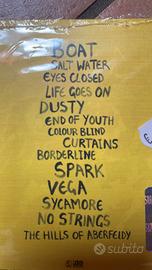 BOAT
SALT WATER
EYES CLOSED
LIFE GOES ON
DUSTY
END OF YOUTH
COLOUR BLIND
CURTAINS
BORDERLINE
SPARK
VEGA
SYCAMORE
NO STRINGS
THE HILLS OF ABERFELDY
subito